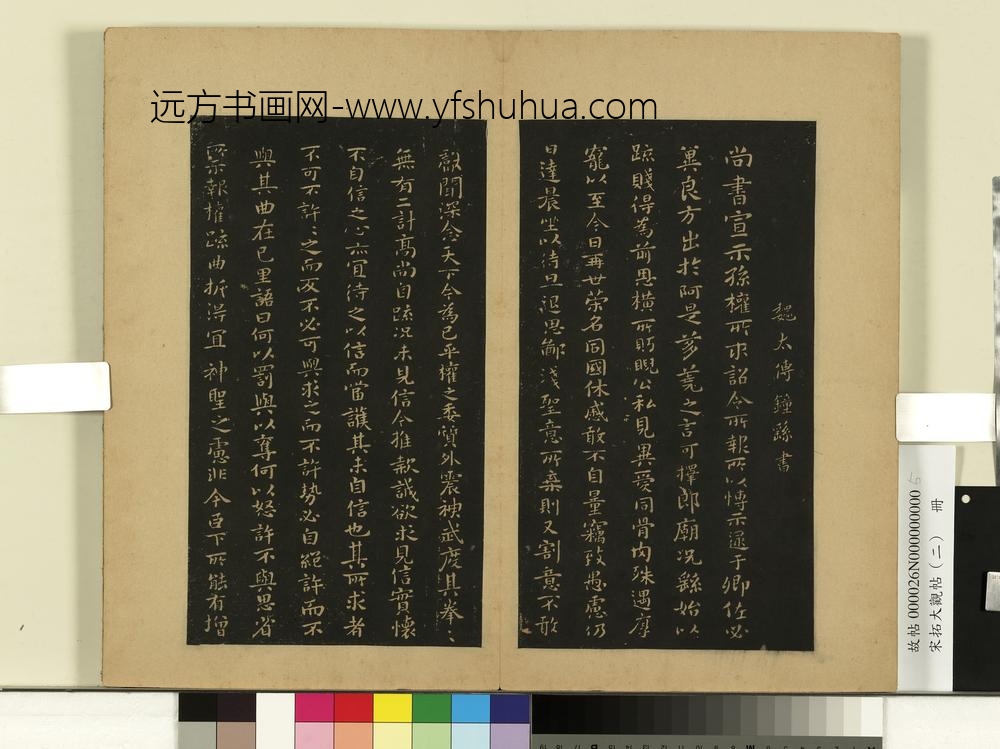 远方书画网-www.yfshuhua.com
魏太傅鍾繇書
尚書宣示孫權所求詔令所報所以博示逮于卿佐必
冀良方出於阿是芻蕘之言可擇郎廟況繇始以
疏賤得為前恩橫所盱睨公私見異愛同骨肉殊遇厚
寵以至今日再世荣名同國休慼敢不自量竊致愚慮仍
日達晨坐以待旦退思鄙淺聖意所棄則又割意不敢
獻聞深念天下今為已平權之委質外震神武度其拳〻
無有二計高尚自疏況未見信今推款誠欲求見信實懷
不自信之心亦宜待之以信而當護其未自信也其所求者
不可不許〻之而反不必可與求之而不許勢必自絕許而不
與其曲在己里語曰何以罰與以奪何以怒許不與思省
所示報權疏曲折得宜神聖之慮非今臣下所能有增
故帖000026N000000000 5
宋拓大觀帖(二) 冊